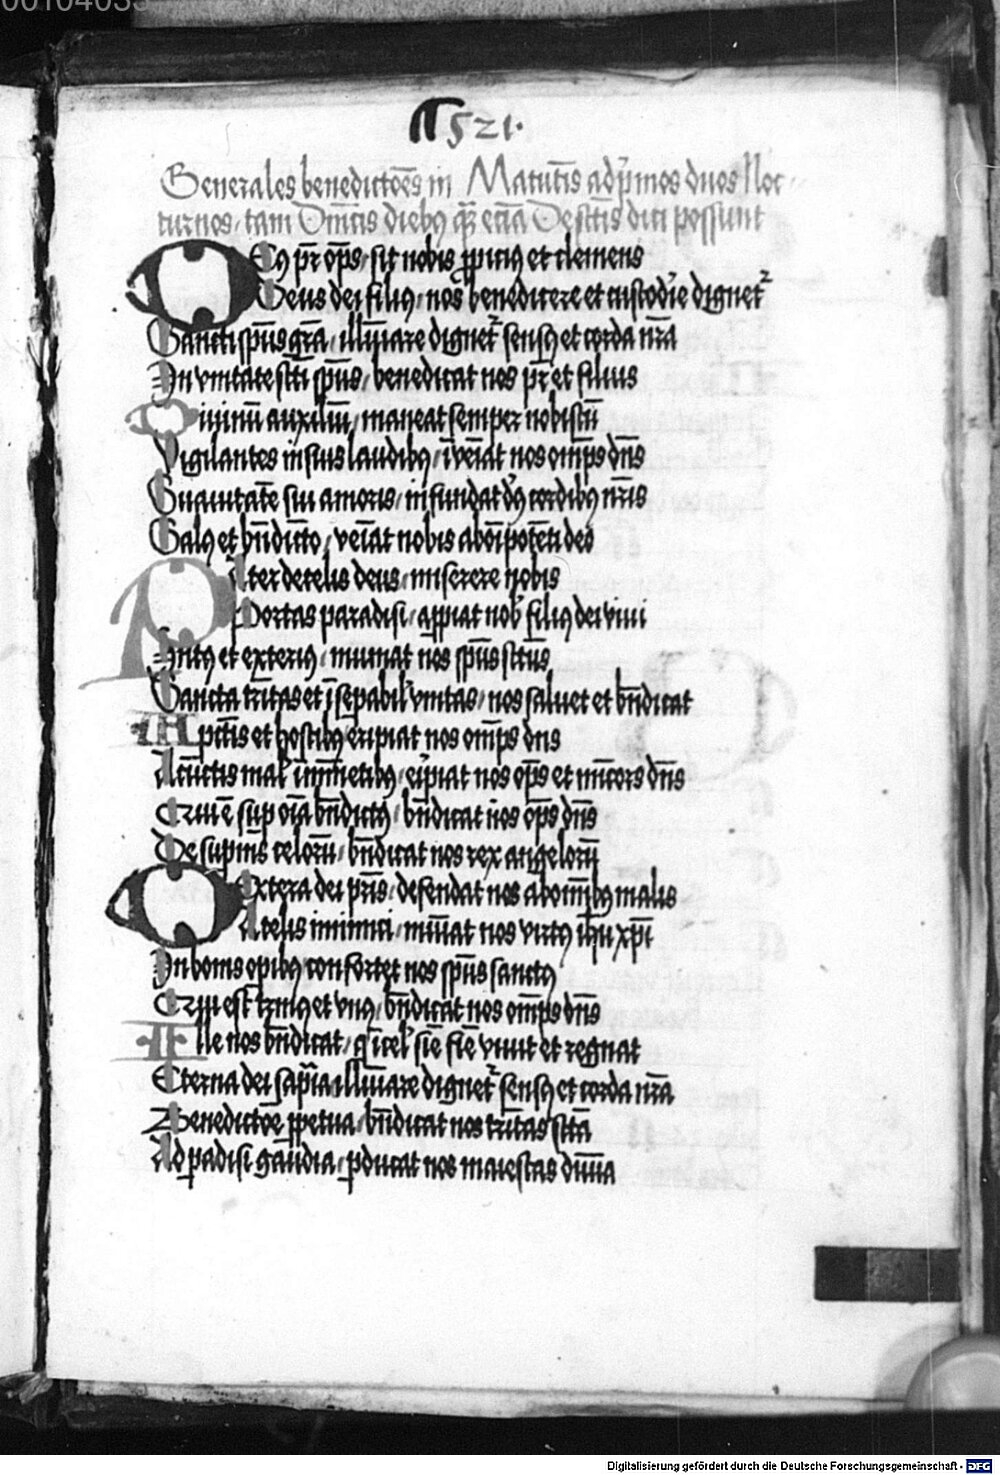 00104035
1521.
Generales benedictōēs in Matutīs ad p̄mos duos Noc
turnos, tam Dnīcis diebꝰ q̄ȝ ecīā De sctīs dici possunt
Deꝰ pr̄ op̄s, sit nobis ꝓpiciꝰ et clemens
Deus dei filiꝰ, nos benedicere et custodīe dignet᷑
Sancti sp̄us grā, illūiare dignet᷑ sensꝰ et corda nr̄a
In vnitate scti sp̄us, benedicat nos pr̄ et filius
Diuinū auxiliū, maneat semper nobiscū
Vigilantes in suis laudibꝰ, īveīat nos om̄ps dn̄s
Suauitatē sui amoris, infundat dꝰ cordibꝰ nr̄is
Salꝰ et bn̄dictio, veīat nobis ab oīpotēti deo
Pater de celis deus, miserere nobis
Portas paradisi, apꝑiat nob̄ filiꝰ dei viui
Intꝰ et exteriꝰ, muniat nos sp̄us sctūs
Sancta tr̄itas et īsepabil᷑ vnitas, nos saluet et bn̄dicat
A pctīs et hostibꝰ eripiat nos om̄ps dn̄s
A cūctis mal᷑ īmīetibꝰ, eīpiat nos op̄s et mīcors dn̄s
Crucē sup oīa bn̄dictꝰ, bn̄dicat nos op̄s dn̄s
De supnīs celorū, bn̄dicat nos rex angelorū
Dextera dei pr̄is, defendat nos ab oīb̄ꝰ malis
A telis inimici, mūiat nos virtꝰ ihū xp̄i
In bonis opibꝰ confortet nos sp̄us sanctꝰ
Qui est trinꝰ et vnꝰ, bn̄dicat nos om̄ps dn̄s
Ille nos bn̄dicat, q̄ ī cel᷑ siē fiē viuit et regnat
Eterna dei sapīa illūiare dignet᷑ sensꝰ et corda nr̄a
Benedictōe ꝑpetua, bn̄dicat nos tr̄itas sctā
Ad padisi gaūdia, pducat nos maiestas diūia
Digitalisierung gefördert durch die Deutsche Forschungsgemeinschaft - DFG